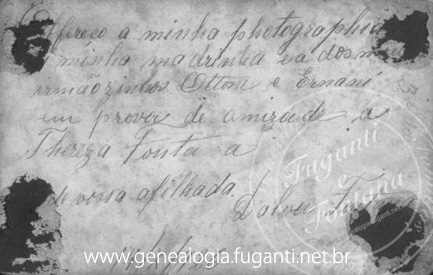 Offereço a minha photographia
minha madrinha e a dos meus
irmãozinhos Ottoni e Ernani
em prova de amizade a
Thereza a
de vossa afilhada. Dalva
Fuganti
e
Fontana
www.genealogia.fuganti.net.br